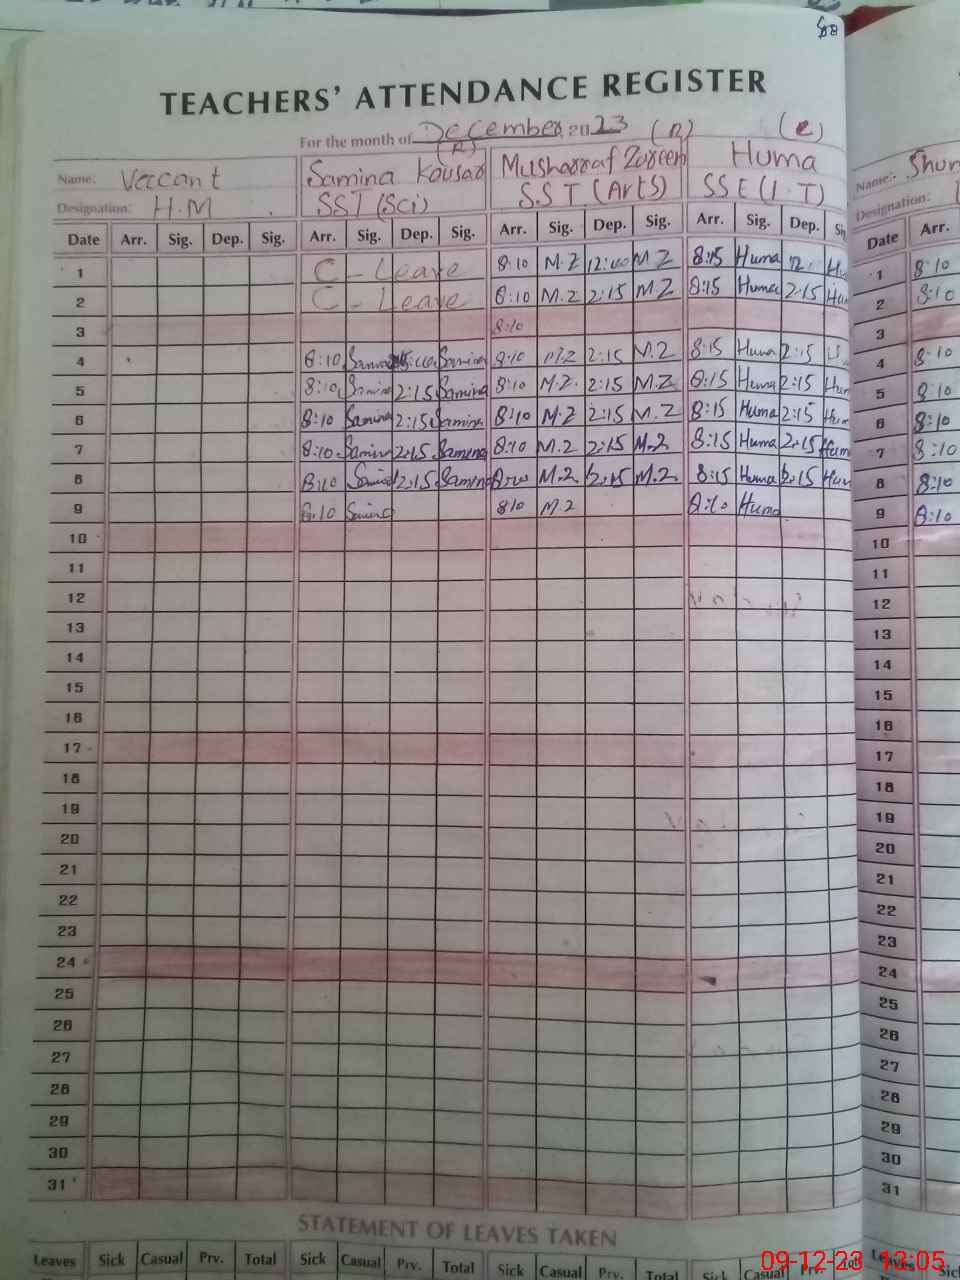 TEACHERS' ATTENDANCE REGISTER
For the month of December 2023 (R) (e)
(R)
Name: Vaccant Samina Kousar Musharraf Zareen Huma Name:- Shum
Designation: H.M SST (Sci) S.S T. (Arts) SSE (I.T) Designation:
Date Arr. Sig. Dep. Sig. Arr. Sig. Dep. Sig. Arr. Sig. Dep. Sig. Arr. Sig. Dep. Sig Date Arr.
1 C - Leave 8:10 M.Z 12:00 M.Z 8:15 Huma 12. Hu 1 8:10
2 C - Leave 8:10 M.Z 2:15 M.Z 8:15 Huma 2:15 Hum 2 8:10
3 8:10 3
4 8:10 Samina Samina 8:10 M.Z 2:15 M.Z 8:15 Huma 2:15 4 8:10
5 8:10 Samina 2:15 Samina 8:10 M.Z. 2:15 M.Z 8:15 Huma 2:15 Hum 5 8:10
6 8:10 Samina 2:15 Samina 8:10 M.Z 2:15 M.Z 8:15 Huma 2:15 Hum 6 8:10
7 8:10 Samina 2:15 Samina 8:10 M.Z 2:15 M.Z 8:15 Huma 2:15 Hum 7 8:10
8 8:10 Samina 2:15 Samina M.Z 2:15 M.Z 8:15 Huma 2:15 Hum 8 8:10
9 8:10 Samina 8:10 M.Z 8:10 Huma 9 8:10
10 10
11 11
12 12
13 13
14 14
15 15
16 16
17 17
18 18
19 19
20 20
21 21
22 22
23 23
24 24
25 25
26 26
27 27
28 28
29 29
30 30
31 31
STATEMENT OF LEAVES TAKEN
Leaves Sick Casual Prv. Total Sick Casual Prv. Total Sick Casual Prv. Total Sick Casual Prv. Total Leaves Sic
09-12-23 12:05